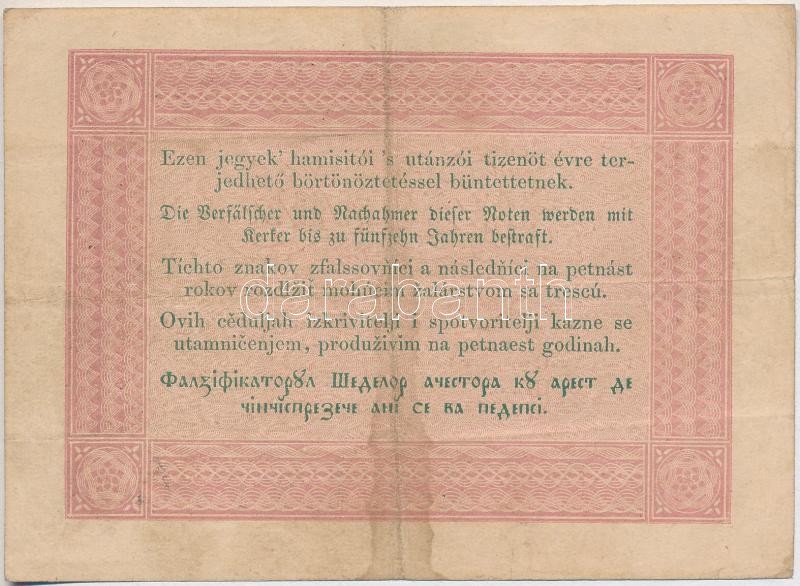 Ezen jegyek' hamisitói 's utánzói tizenöt évre ter-
jedhető börtönöztetéssel büntettetnek.
Die Verfälscher und Nachahmer dieser Noten werden mit
Kerker bis zu fünfzehn Jahren bestraft.
Tíchto znakov zfalssovňíci a následňíci na petnást
rokov rozdlžiť mohúcim žalárstvom sa trescú.
Ovih cěduljah izkrivitelji i spotvoritelji kazne se
utamničenjem, produživim na petnaest godinah.
Фалzіфікаторꙋл Шеделор ачестора кꙋ арест де
чінчіспрезече ані се ва педепсі.
darabanth